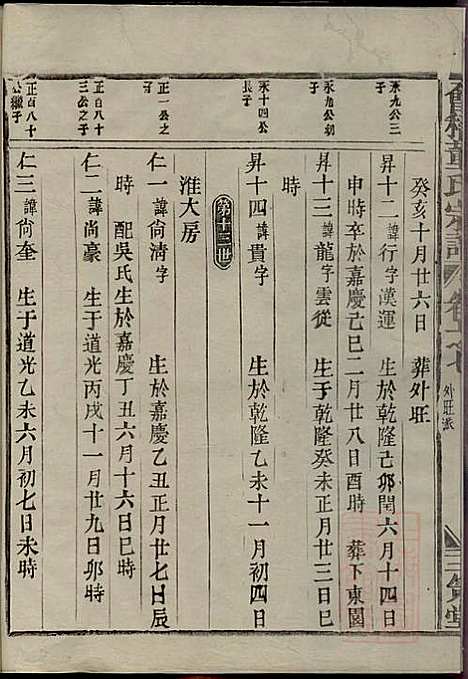 舊程章氏宗譜
外莊派
三會堂
癸亥十月廿六日 葬外莊
永九公三子
昇十二諱行字漢運 生於乾隆己卯閏六月十四日
申時卒於嘉慶己巳二月廿八日酉時 葬下東園
永九公初子
昇十三諱龍字雲從 生于乾隆癸未正月廿三日巳
時
永十四公長子
昇十四諱貴字 生於乾隆乙未十一月初四日
第十三世
淮大房
正一公之子
仁一諱尚清字 生於嘉慶乙丑正月廿七日辰
時 配吳氏生於嘉慶丁丑六月十六日巳時
正百八十三公之子
仁二諱尚豪 生于道光丙戌十一月廿九日卯時
正百八十公繼子
仁三諱尙奎 生于道光乙未六月初七日未時